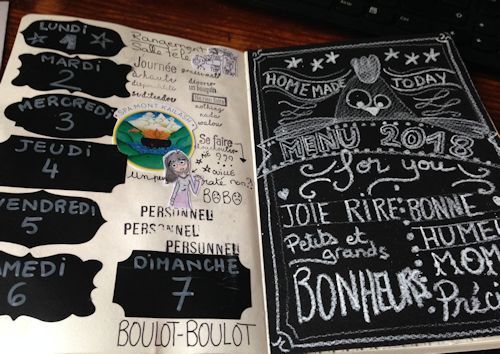 LUNDI
1
MARDI
2
MERCREDI
3
JEUDI
4
VENDREDI
5
SAMEDI
6
DIMANCHE
7
Rangement
Salle
Journée
à haute
nothing
nada
walou
SPA MONT KAILASH
Se faire
???
raté non?!
BOBO
PERSONNEL
PERSONNEL
PERSONNEL
BOULOT-BOULOT
HOME MADE TODAY
MENU 2018
for you
JOIE RIRE BONNE
Petits et
grands
HUME
MOM
BONHEURS
Préci